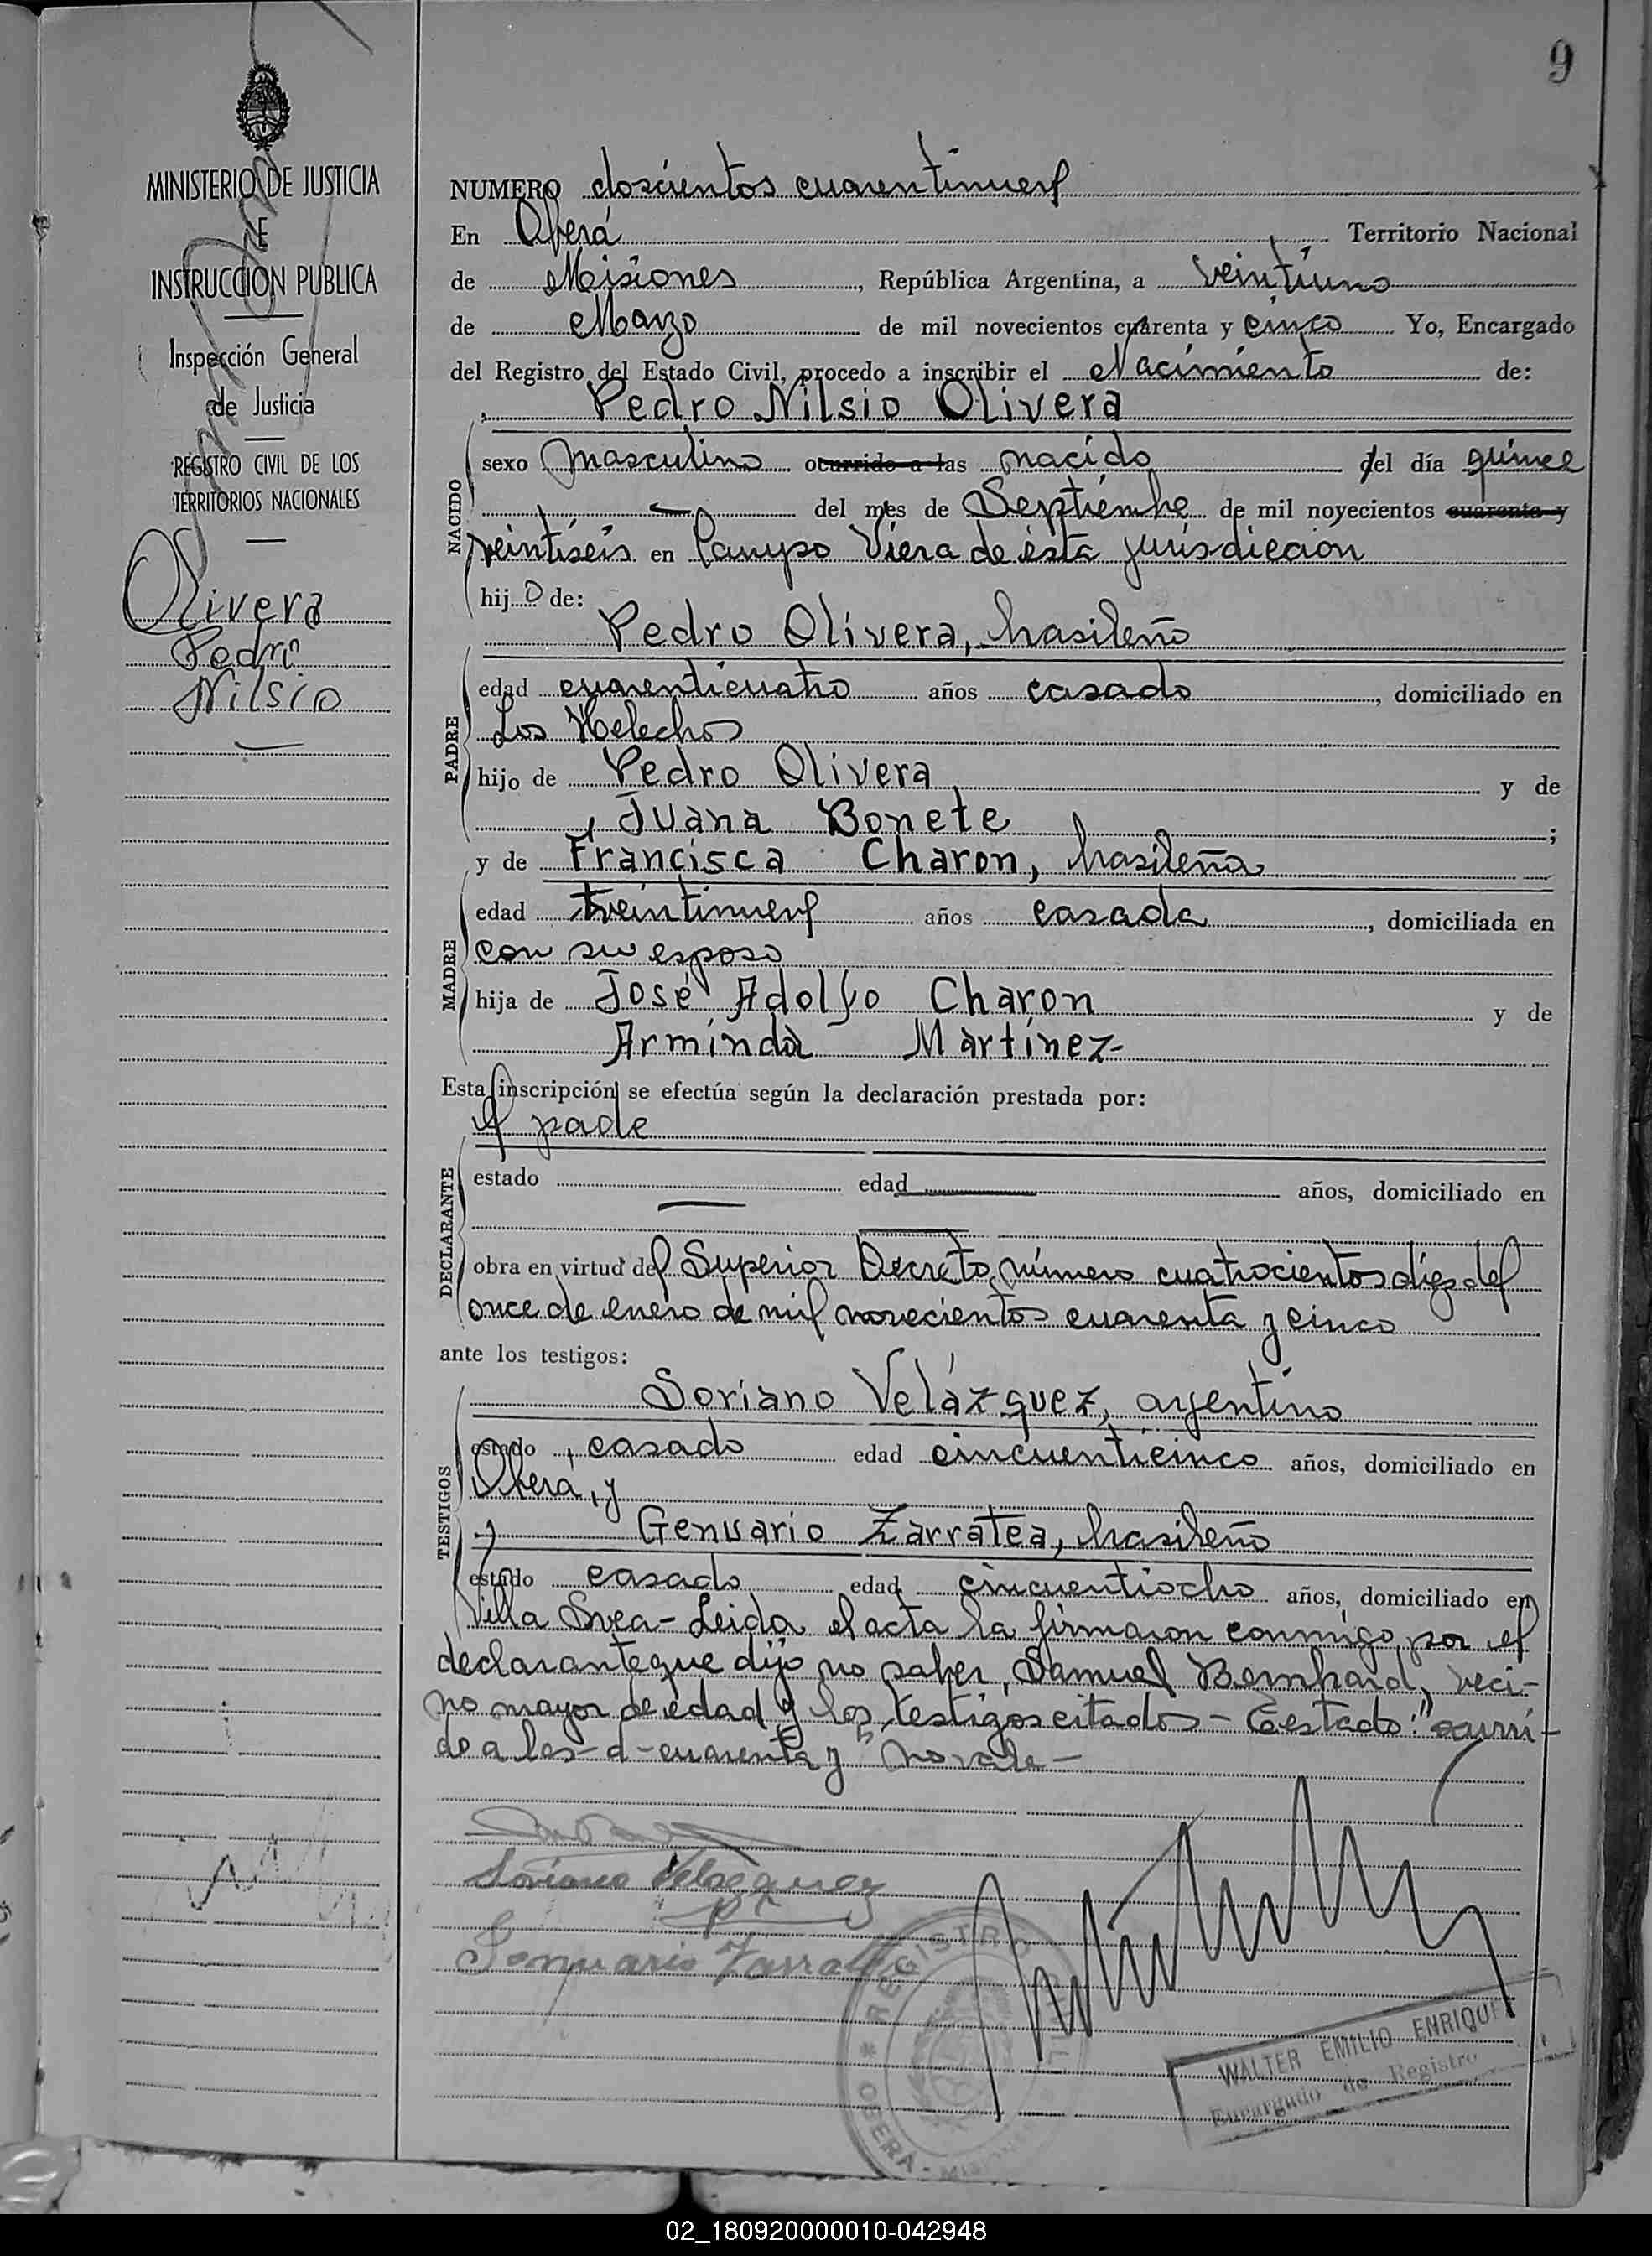 9
MINISTERIO DE JUSTICIA
E
INSTRUCCION PUBLICA
Inspección General
de Justicia
REGISTRO CIVIL DE LOS
TERRITORIOS NACIONALES
Olivera
Pedro
Nilsio
NUMERO doscientos cuarentinueve
En Oberá Territorio Nacional
de Misiones, República Argentina, a veintiuno
de Marzo de mil novecientos cuarenta y cinco Yo, Encargado
del Registro del Estado Civil, procedo a inscribir el Nacimiento de:
Pedro Nilsio Olivera
NACIDO
sexo masculino ocurrido a las nacido el día quince
del mes de Septiembre de mil novecientos cuarenta y
veintiseis en Campo Viera de ésta jurisdiccion
hijo de:
Pedro Olivera, brasileño
PADRE
edad cuarenticuatro años casado, domiciliado en
Los Helechos
hijo de Pedro Olivera y de
Juana Bonete;
y de Francisca Charon, brasileña
MADRE
edad treintinueve años casada, domiciliada en
con su esposo
hija de José Adolfo Charon y de
Arminda Martínez-
Esta inscripción se efectúa según la declaración prestada por:
el padre
DECLARANTE
estado edad años, domiciliado en
obra en virtud del Superior Decreto número cuatrocientos diez del
once de enero de mil novecientos cuarenta y cinco
ante los testigos:
TESTIGOS
Soriano Velázquez, argentino
estado casado edad cincuenticinco años, domiciliado en
Oberá, y
Genuario Zarratea, brasileño
estado casado edad cincuentiocho años, domiciliado en
Villa Svea- Leida el acta la firmaron conmigo, por el
declarante que dijo no saber, Samuel Bernhard, veci-
no mayor de edad y los testigos citados - Testado: "ocurri-
do a las - d - cuarenta y" no vale -
Soriano Velazquez
Genuario Zarratea
REGISTRO
OBERA - MISIONES
WALTER EMILIO ENRIQUE
Encargado de Registro
02_180920000010-042948